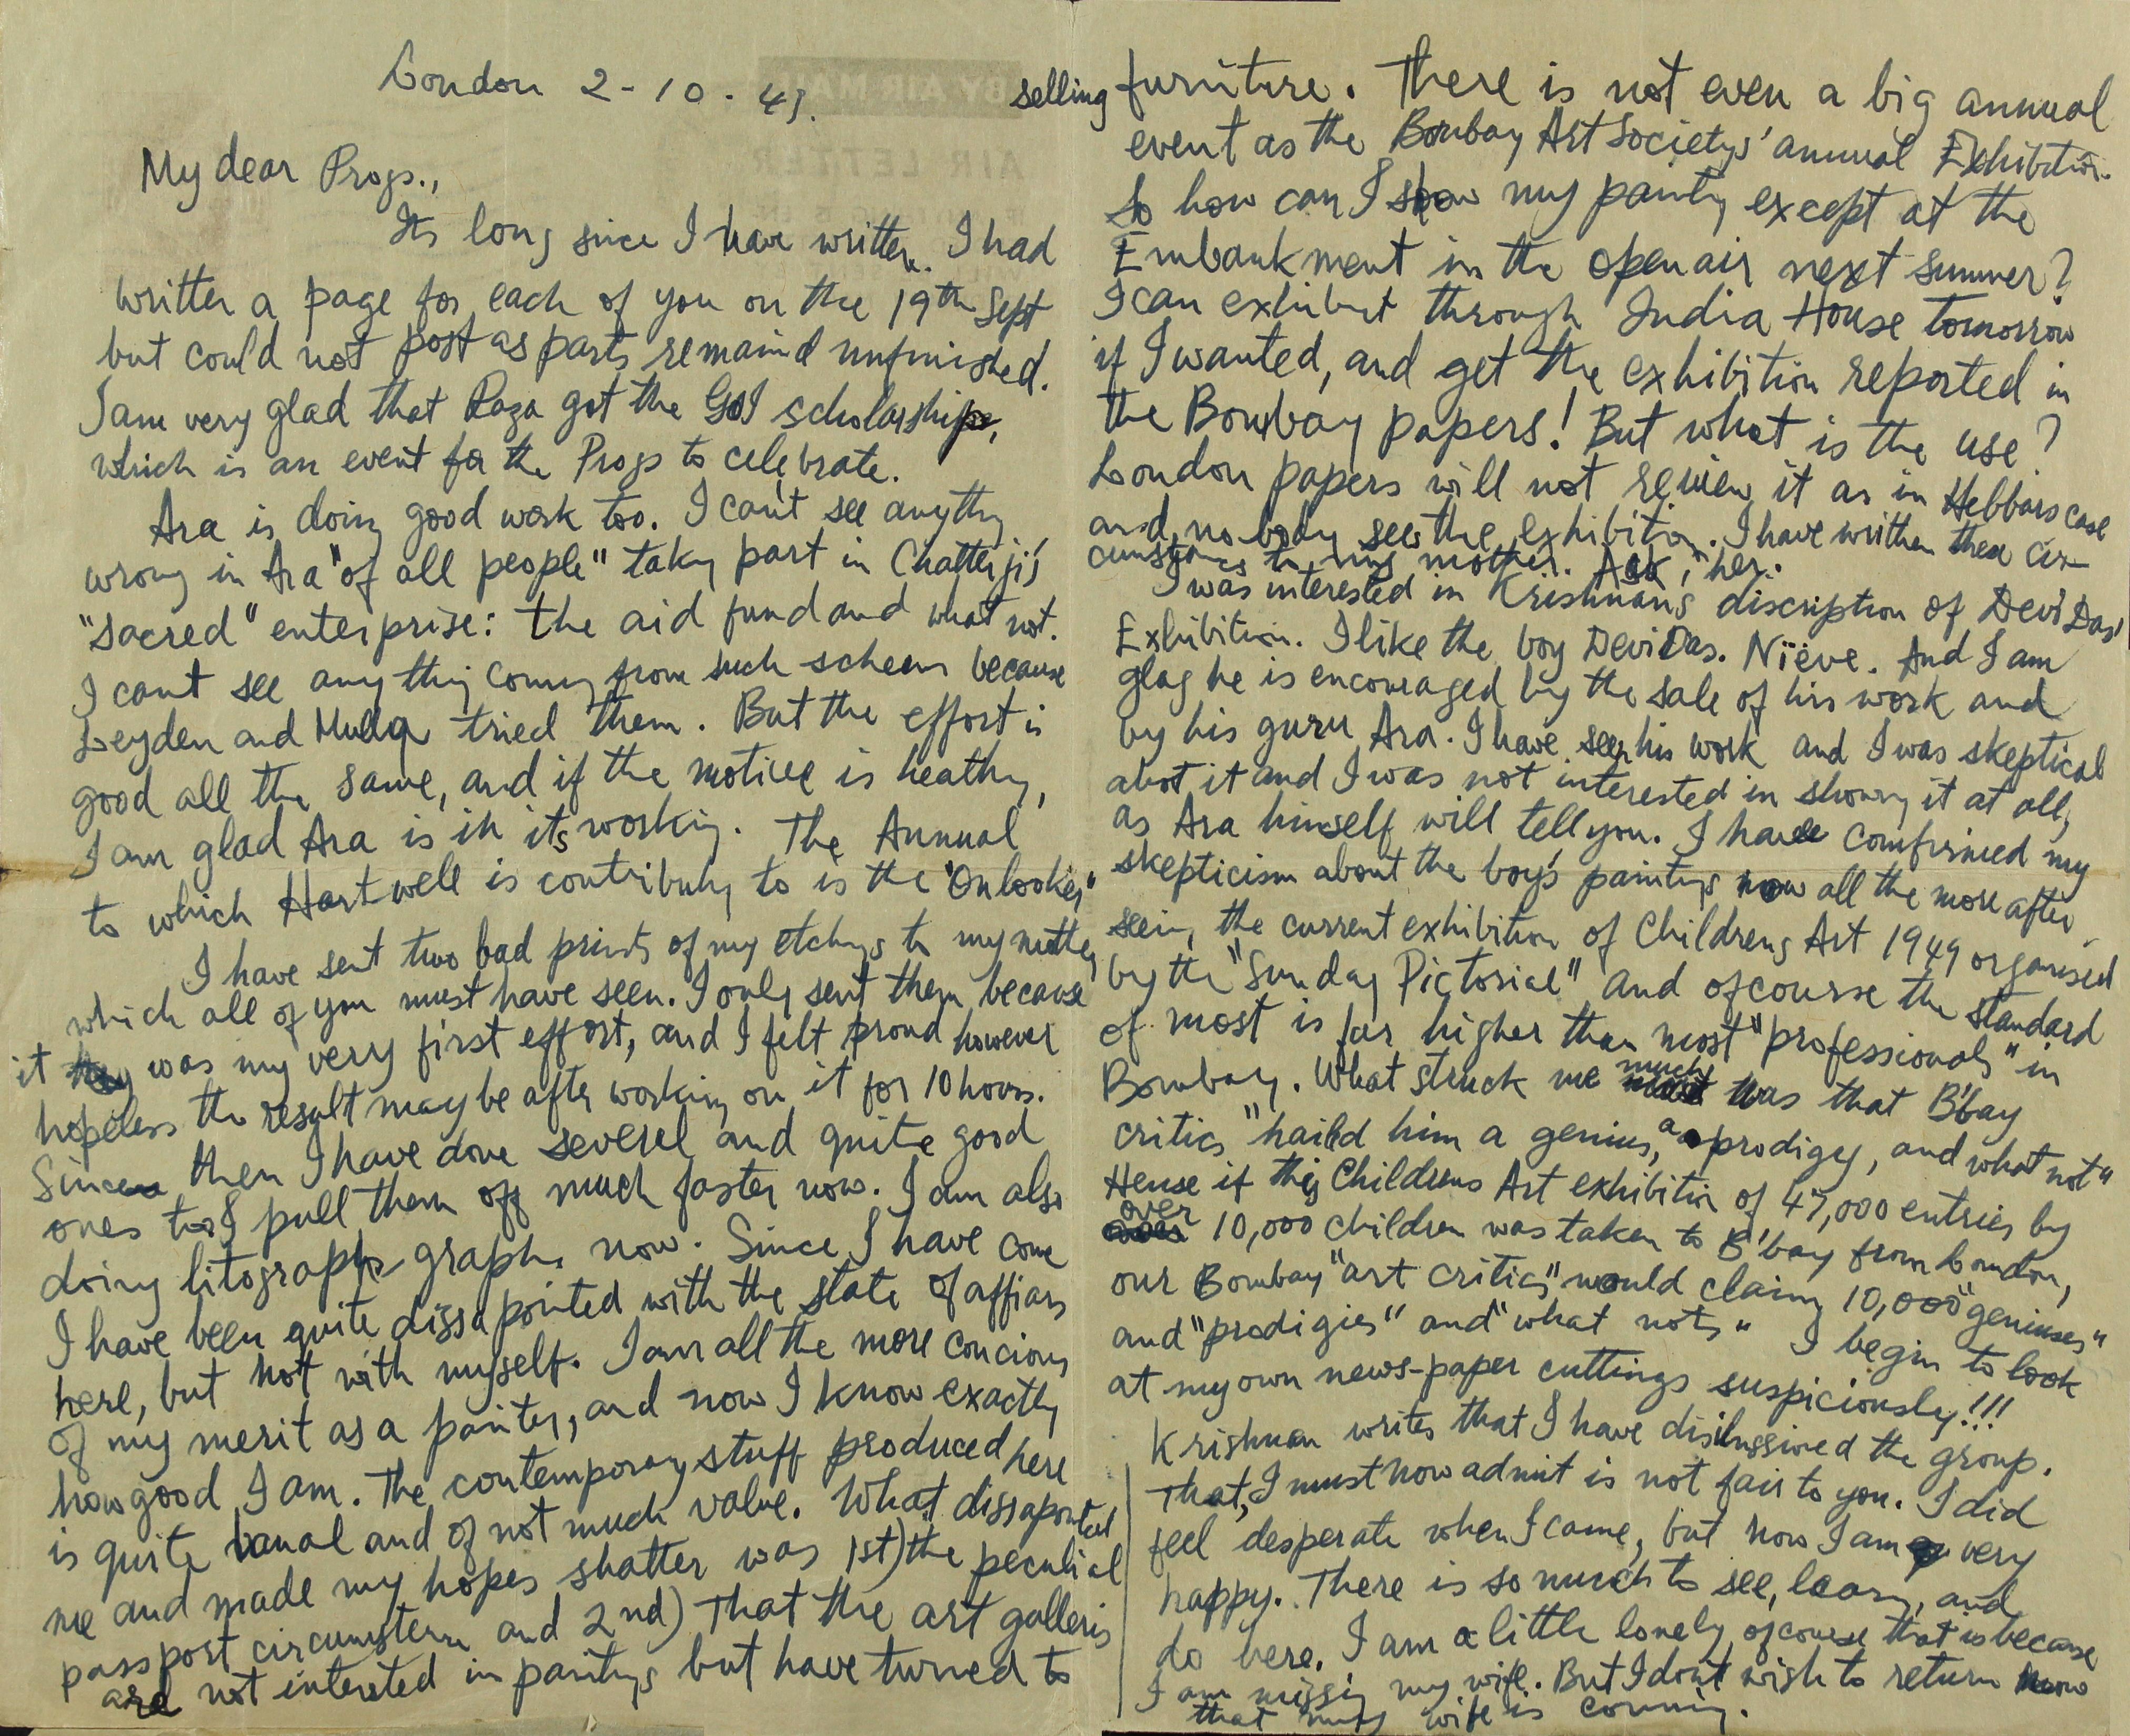 London 2-10-49.
My dear Progs.,
Its long since I have written. I had
written a page for each of you on the 19th Sept
but could not post as parts remaind unfinished.
I am very glad that Raza got the GoI scholarship,
which is an event for the Progs to celebrate.
Ara is doing good work too. I can't see anything
wrong in Ara "of all people" taking part in Chatterji's
"sacred" enterprise: the aid fund and what not.
I cant see any thing coming from such schems because
Leyden and Mulla tried them. But the effort is
good all the same, and if the motive is heathy,
I am glad Ara is in its working. The Annual
to which Hartwell is contributing to is the "Onlooker"
I have sent two bad prints of my etchings to my mother
which all of you must have seen. I only sent them because
it was my very first effort, and I felt proud however
hopeless the result may be after working on it for 10 hours.
Since then I have done severel and quite good
ones too I pull them off much faster now. I am also
doing litograph graphs now. Since I have come
I have been quite dissapointed with the state of affiars
here, but not with myself. I am all the more concious
of my merit as a painter, and now I know exactly
how good I am. The contemporary stuff produced here
is quite banal and of not much value. What dissapointed
me and made my hopes shatter was 1st) the peculial
passport circumstern and 2nd) That the art galleris
are not intersted in paintings but have turned to
selling furniture. There is not even a big annual
event as the Bombay Art Societys' annual Exhibition.
So how can I show my painting except at the
Embankment in the open air next summer?
I can exhibit through India House tomorrow
if I wanted, and get the exhibition reported in
the Bombay papers! But what is the use?
London papers will not review it as in Hebbars case
and nobody sees the exhibition. I have written these cir-
cumstances to my mother. Ask her.
I was interested in Krishnan's discription of Devi Das'
Exhibition. I like the boy Devi Das. Nïeve. And I am
glag he is encouraged by the sale of his work and
by his guru Ara. I have seen his work and I was skeptical
abot it and I was not interested in showing it at all,
as Ara himself will tell you. I have comfirmed my
skepticism about the boy's paintings now all the more after
seeing the current exhibition of Childrens Art 1949 organised
by the "Sunday Pictorial" and ofcourse the standard
of most is far higher than most "professionals" in
Bombay. What struck me much was that B'bay
critics "haild him a genius, a prodigy, and what not"
Hense if this Childrens Art exhibition of 47,000 entries by
over 10,000 children was taken to B'bay from London,
our Bombay "art critics" would claim 10,000 "geniuses"
and "prodigies" and "what nots" I begin to look
at my own news-paper cuttings suspiciously!!!
Krishnan writes that I have disilussioned the group.
That, I must now admit is not fair to you. I did
feel desperate when I came, but now I am very
happy. There is so much to see, learn, and
do here. I am a little lonely ofcourse that is because
I am missing my wife. But I dont wish to return now
that my wife is coming.